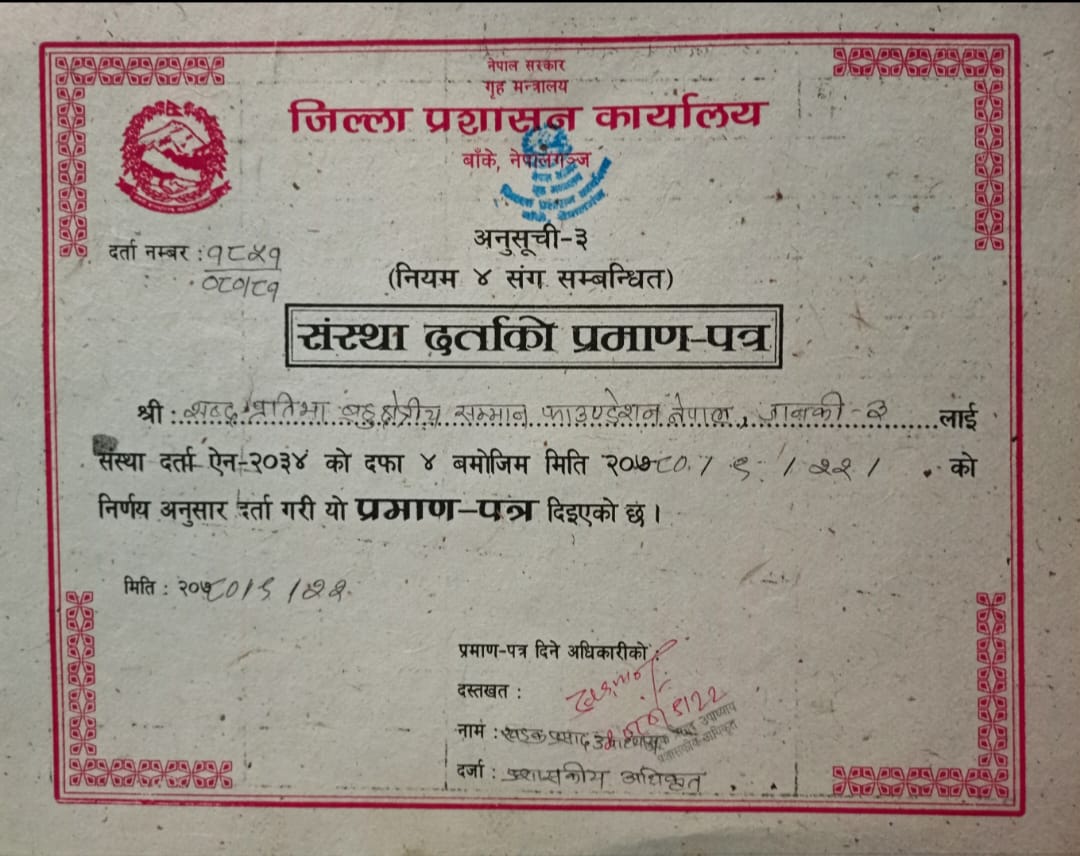 नेपाल सरकार
गृह मन्त्रालय
जिल्ला प्रशासन कार्यालय
बाँके, नेपालगञ्ज
अनुसूची-३
दर्ता नम्बर : १८५१
०८०/८१
(नियम ४ संग सम्बन्धित)
संस्था दर्ताको प्रमाण-पत्र
श्री : शब्द प्रतिभा बहुक्षेत्रीय सम्मान फाउण्डेशन नेपाल, जानकी - ३ लाई
संस्था दर्ता ऐन-२०३४ को दफा ४ बमोजिम मिति २०७८०/९/२२/ को
निर्णय अनुसार दर्ता गरी यो प्रमाण-पत्र दिइएको छ।
मिति : २०७८०/९/२२
प्रमाण-पत्र दिने अधिकारीको :
दस्तखत :
नाम : खडक प्रसाद
दर्जा : प्रशासकीय अधिकृत